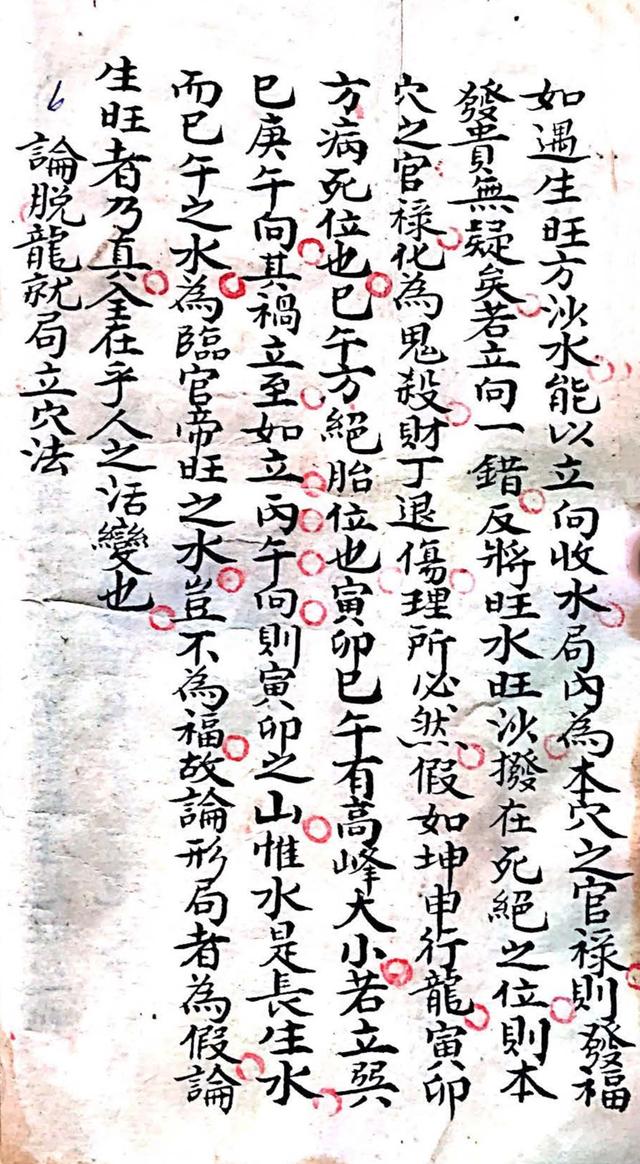 如遇生旺方沙水能以立向收水局內為本穴之官祿則發福
發貴無疑矣若立向一錯反將旺水旺沙撥在死絕之位則本
穴之官祿化為鬼殺財丁退傷理所必然假如坤申行龍寅卯
方病死位也巳午方絕胎位也寅卯巳午有高峰大小若立巽
巳庚午向其禍立至如立丙午向則寅卯之山惟水是長生水
而巳午之水為臨官帝旺之水豈不為福故論形局者為假論
生旺者乃真全在乎人之活變也
6 論脫龍就局立穴法